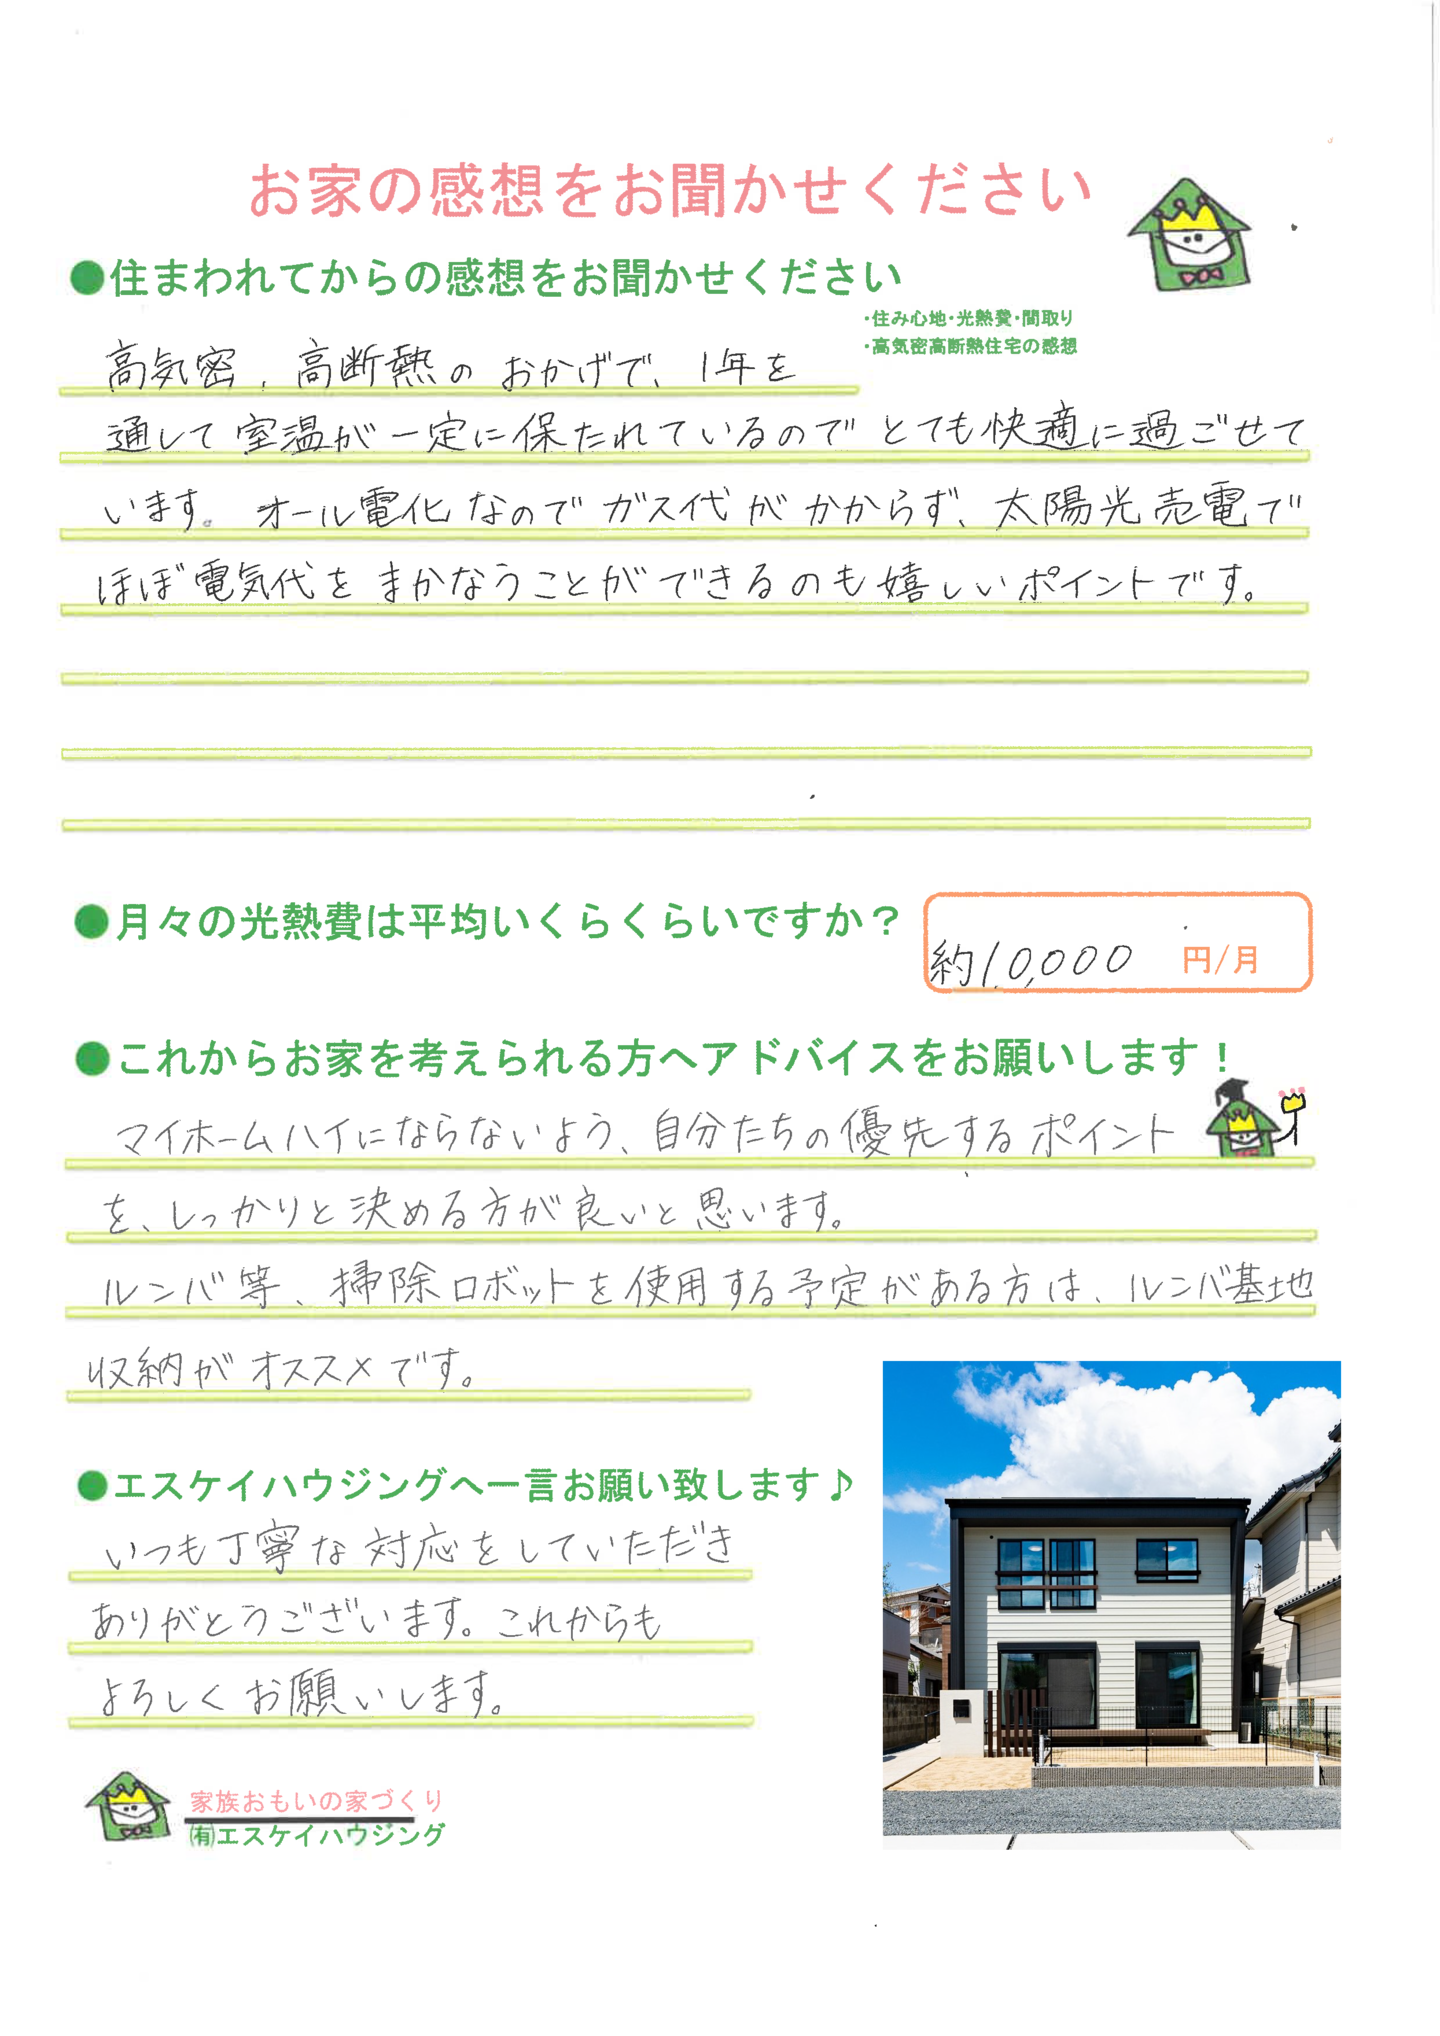 お家の感想をお聞かせください
●住まわれてからの感想をお聞かせください
・住み心地・光熱費・間取り
・高気密高断熱住宅の感想
高気密、高断熱のおかげで、1年を
通して室温が一定に保たれているのでとても快適に過ごせて
います。オール電化なのでガス代がかからず、太陽光売電で
ほぼ電気代をまかなうことができるのも嬉しいポイントです。
●月々の光熱費は平均いくらくらいですか？
約10,000 円/月
●これからお家を考えられる方へアドバイスをお願いします！
マイホームハイにならないよう、自分たちの優先するポイント
を、しっかりと決める方が良いと思います。
ルンバ等、掃除ロボットを使用する予定がある方は、ルンバ基地
収納がオススメです。
●エスケイハウジングへ一言お願い致します♪
いつも丁寧な対応をしていただき
ありがとうございます。これからも
よろしくお願いします。
家族おもいの家づくり
㈲エスケイハウジング